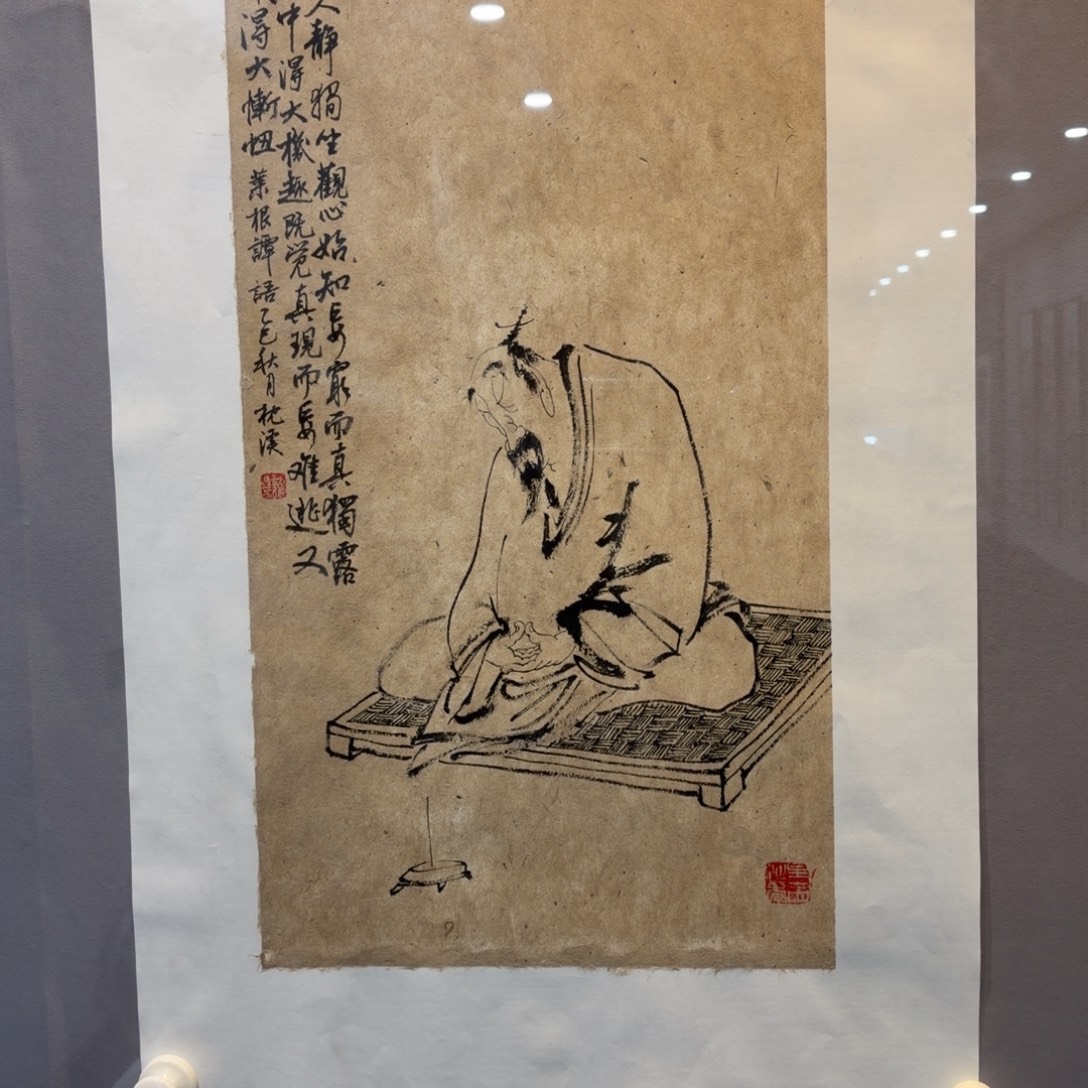 人静獨坐觀心始知妄窮而真獨露
中得大機趣既觉真現而妄难逃又
得大慚忸菜根譚語乙巳秋月枕溪